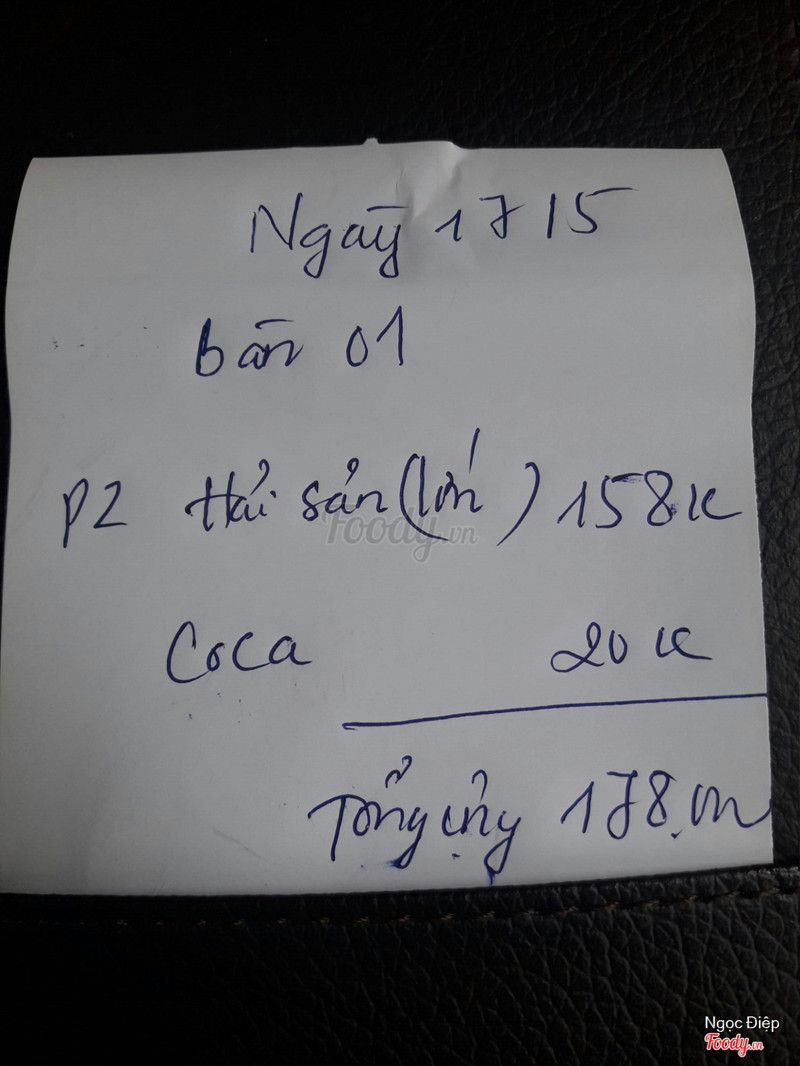 Ngày 17/5
bàn 01
P2 Hải sản (lớn) 158K
Foody.vn
Coca 20K
Tổng cộng 178.
Ngọc Điệp
Foody.vn